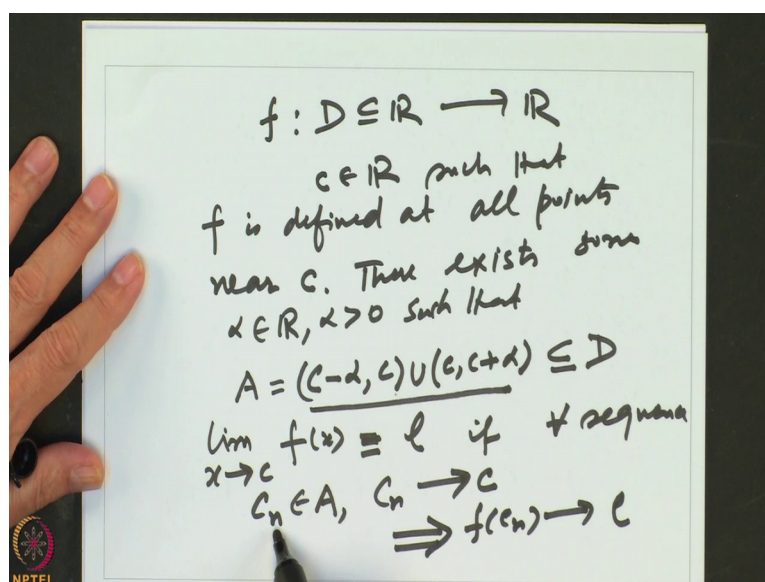 f : D ⊆ ℝ ⟶ ℝ
c ∈ ℝ such that
f is defined at all points
near c. There exists some
α ∈ ℝ, α > 0 such that
A = (c-α, c) ∪ (c, c+α) ⊆ D
lim f(x) = l if ∀ sequence
x → c
c_n ∈ A, c_n ⟶ c
⟹ f(c_n) ⟶ l
NPTEL